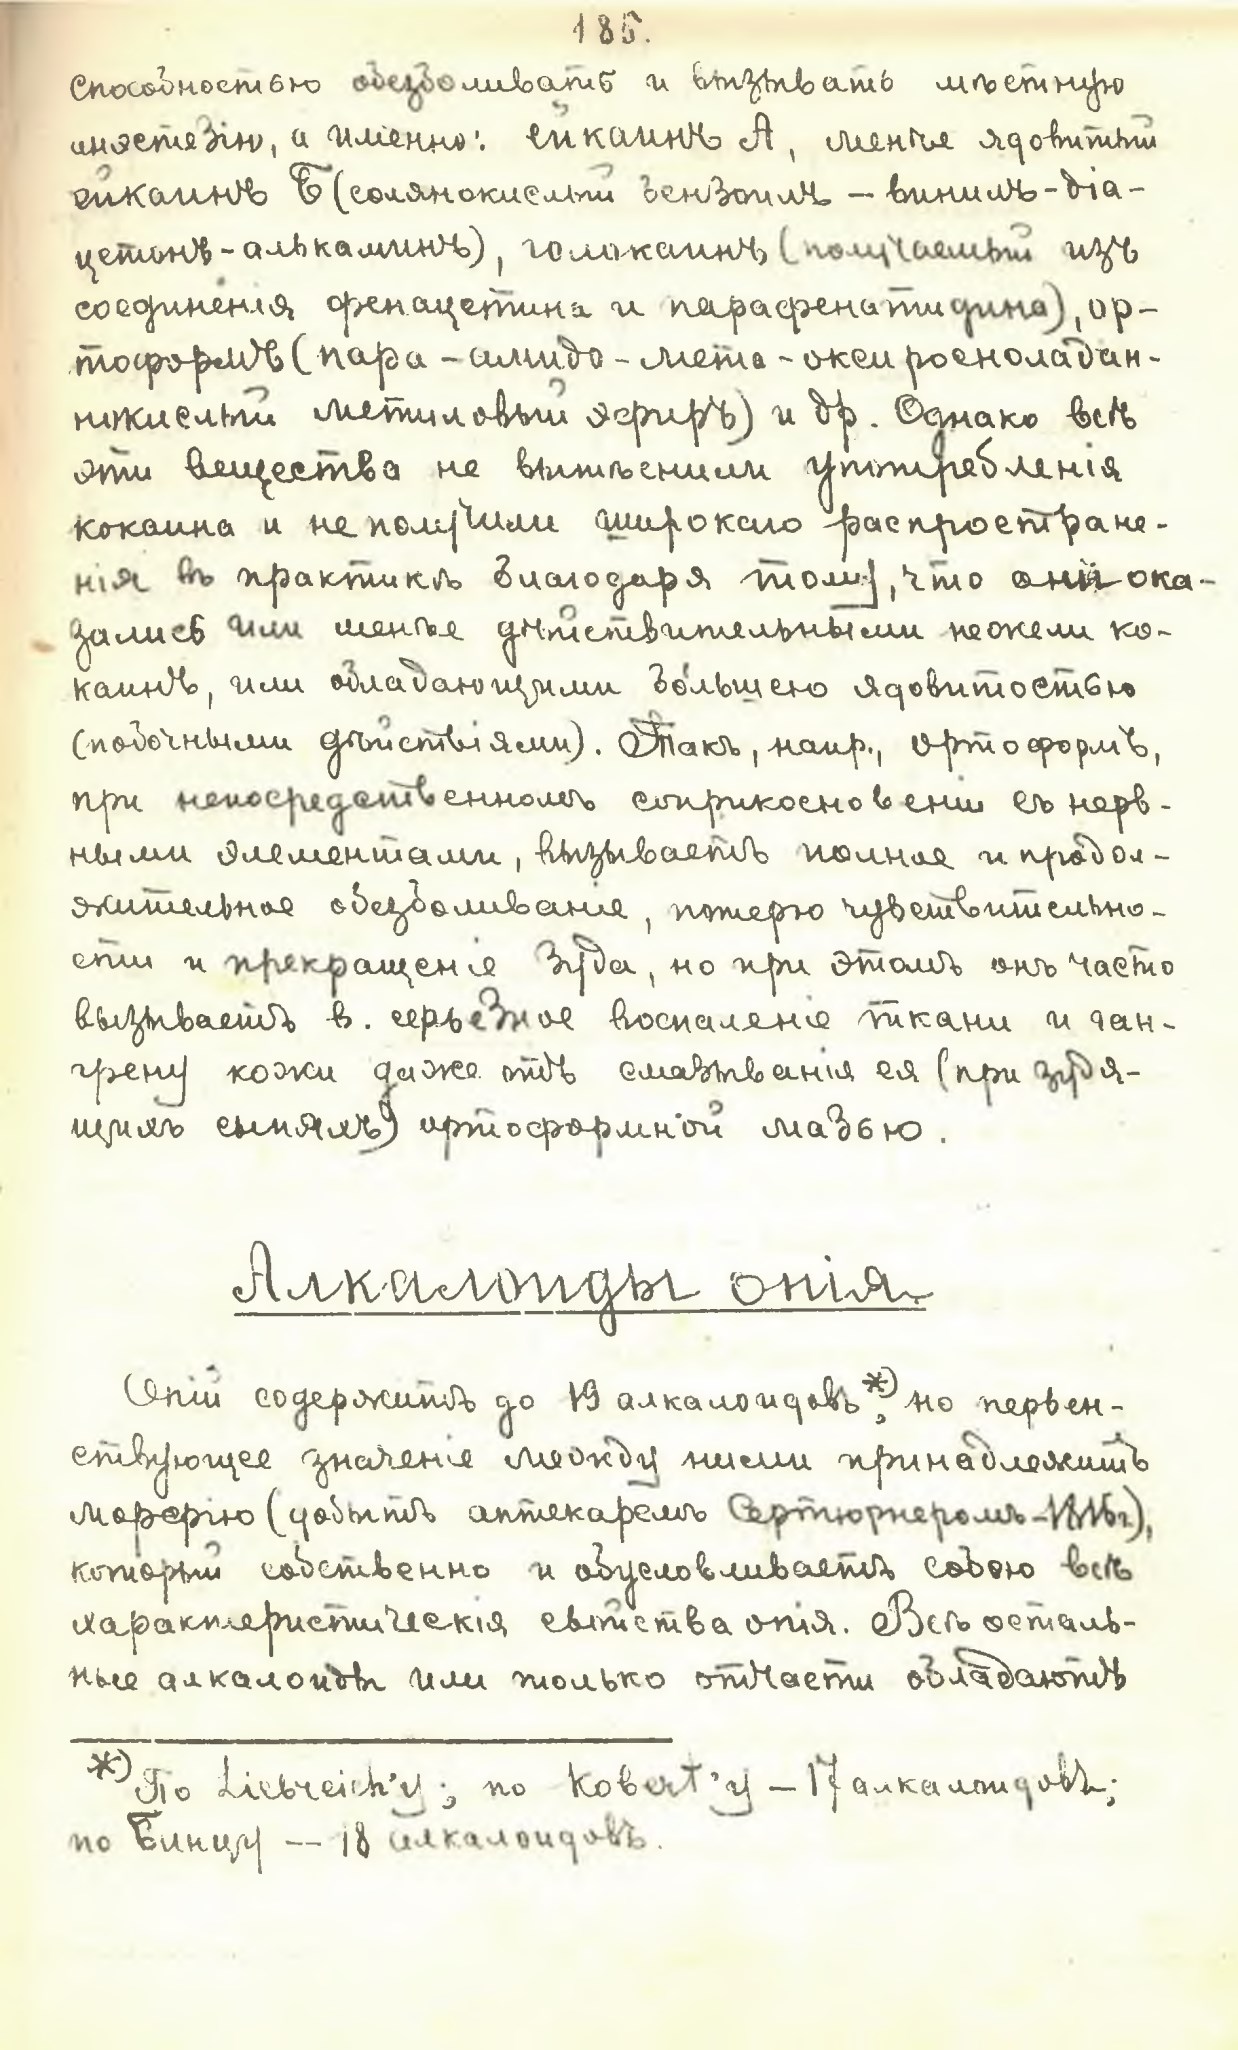 185.
способностью обезболивать и вызывать мѣстную
анэстезію, а именно: ейкаинъ А, менѣе ядовитый
ейкаинъ Б (солянокислый бензоилъ – винилъ-діа-
цетонъ-алькаминъ), голокаинъ (получаемый изъ
соединенія фенацетина и парафенатидина), ор-
тоформъ (пара – амидо – мета – окси
метиловый эфиръ) и др. Однако всѣ
эти вещества не вытѣснили употребленія
кокаина и не получили широкаго распростране-
нія въ практикѣ благодаря тому, что они ока-
зались или менѣе дѣйствительными нежели ко-
каинъ, или обладающими бо́льшею ядовитостью
(побочными дѣйствіями). Такъ, напр., ортоформъ,
при непосредственномъ соприкосновеніи съ нерв-
ными элементами, вызываетъ полное и продол-
жительное обезболиваніе, потерю чувствительно-
сти и прекращеніе зуда, но при этомъ онъ часто
вызываетъ в. серьезное воспаленіе ткани и ган-
грену кожи даже отъ смазыванія ея (при зудя-
щихъ сыпяхъ) ортоформной мазью.
Алкалоиды опія.
Опій содержитъ до 19 алкалоидовъ*), но первен-
ствующее значеніе между ними принадлежитъ
морфію (добытъ аптекаремъ Сертюрнеромъ – 1816г.),
который собственно и обусловливаетъ собою всѣ
характеристическія свойства опія. Всѣ осталь-
ные алкалоиды или только отчасти обладаютъ
*) По Liebreich'у; по Kobert'у – 17 алкалоидовъ;
по Бинцу – 18 алкалоидовъ.